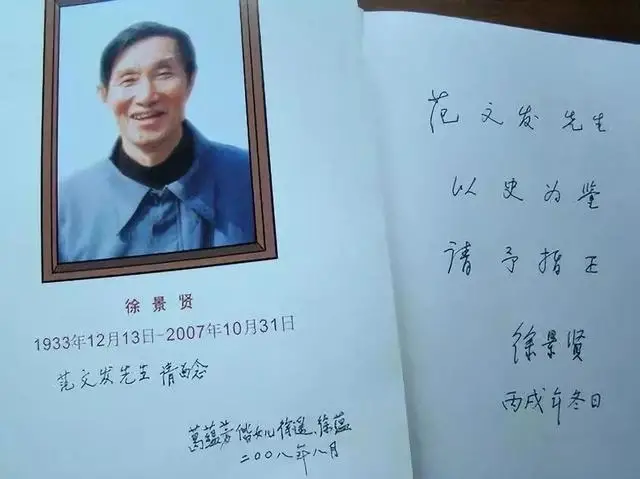 徐景贤
1933年12月13日-2007年10月31日
范文发先生 请留念
葛蕴芳偕女儿徐遥、徐蕴
二〇〇八年八月
范文发先生
以史为鉴
请予指正
徐景贤
丙戌年冬日